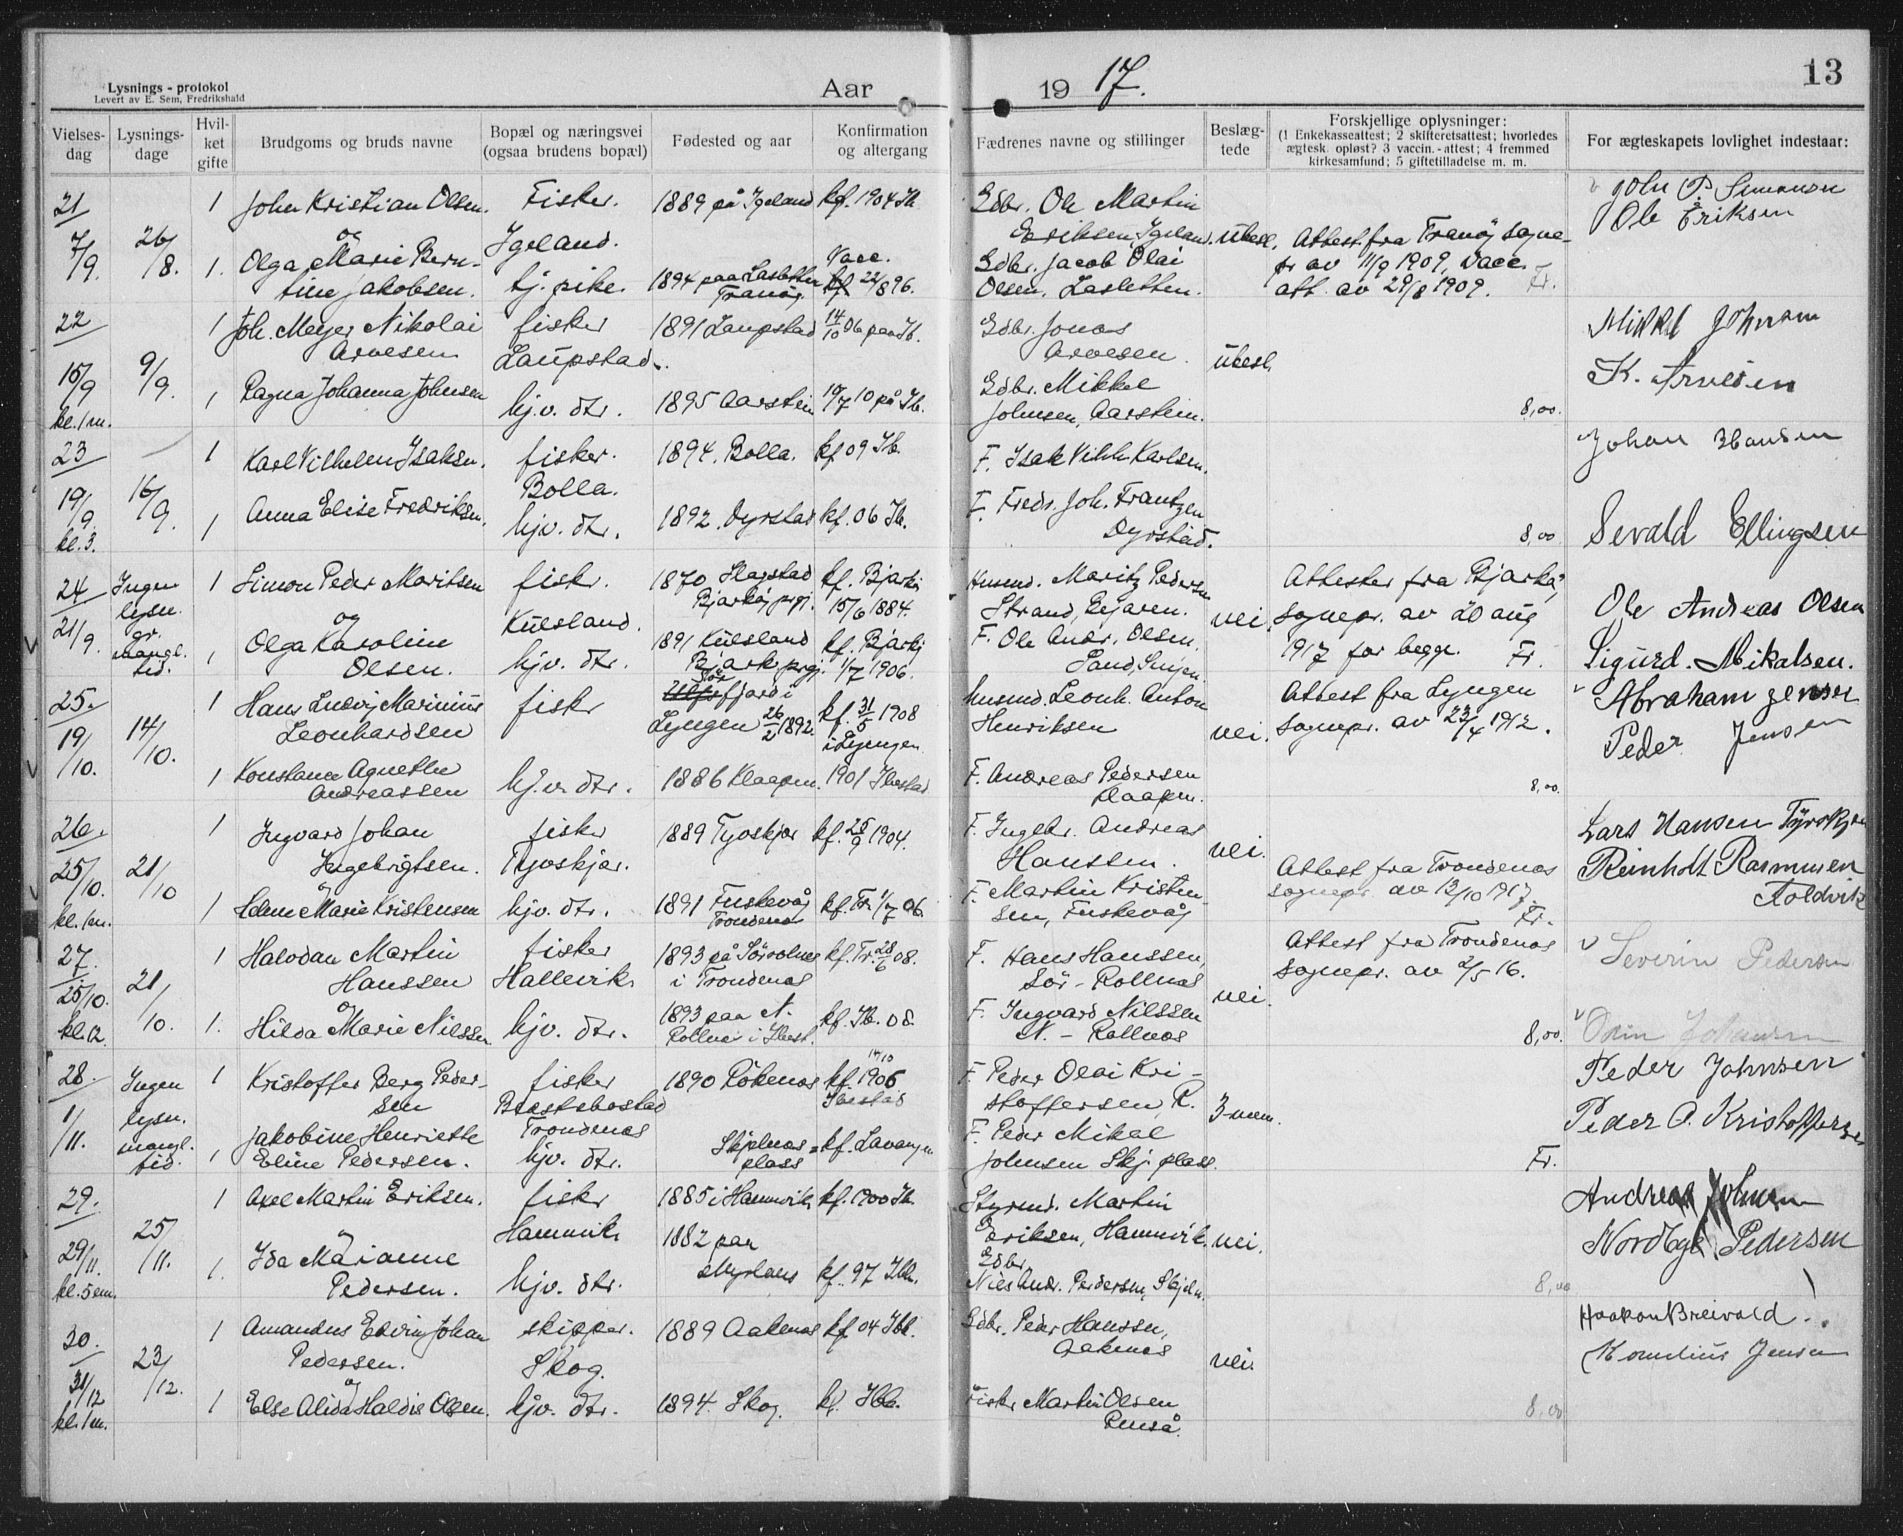 Lysnings - protokol
Levert av E. Sem, Fredrikshald
Aar 19 17.
13
Vielses-dag
Lysnings-dage
Hvil-ket gifte
Brudgoms og bruds navne
Bopæl og næringsvei (ogsaa brudens bopæl)
Fødested og aar
Konfirmation og altergang
Fædrenes navne og stillinger
Beslæg-tede
Forskjellige oplysninger:
(1 Enkekasseattest; 2 skifteretsattest; hvorledes
ægtesk. opløst? 3 vaccin.-attest; 4 fremmed
kirkesamfund; 5 giftetilladelse m. m.
For ægteskapets lovlighet indestaar:
21
7/9. 26/8.
1 John Kristian Olsen. Fisker. 1889 på Igeland kf. 1904 Ib.
og Igeland.
1. Olga Marie Bern-
tine Jakobsen. hj. pike. 1894 paa Lasletten Tranöy Vacc. 22/8 96.
Gdbr. Ole Martin
Eriksen, Igeland. ubesl.
Gdbr. Jacob Olai
Olsen. Lasletten.
Attest fra Tranöy sogne-
pr av 11/9 1909, Vacc.
att. av 29/8 1909. Fr.
John P. Simonsen
Ole Eriksen
22
15/9 9/9. kl. 1 m.
1 Joh. Meyer Nikolai fisker 1891 Laupstad 14/10 06 paa Ib.
Arvesen Laupstad.
1 Ragna Johanna Johnsen hj.v. dtr. 1895 Aarstein 17/7 10 på Ib.
Gdbr. Jonas
Arvesen. ubesl.
Gdbr. Mikkel
Johnsen, Aarstein. 8,00.
Mikkel Johnsen
K. Arvesen
23
19/9 16/9. kl. 3.
1 Karl Vilhelm Isaksen. fisker. 1894. Bolla. kf 09 Ib.
Bolla.
1 Anna Elise Fredriksen. hjv. dtr. 1892. Dyrstad kf. 06 Ib.
F. Isak Vilh. Karlsen.
F. Fredr. Joh. Frantzen
Dyrstad. 8,00
Johan Hansen
Sevald Ellingsen
24
21/9. Ingen lysn. gr. mangl. tid.
1 Simon Peder Moritsen fiskr. 1870 Hagstad kf. Bjarköy
og Bjarköy prgj. 15/6 1884.
Kulsland.
1 Olga Karoline 1891 Kulsland kf. Bjarköy
Olsen. hjv. dtr. Bjark. prgj. 1/7 1906.
Husmd. Moritz Pedersen
Strand, Gryfaren. nei.
F. Ole Andr. Olsen.
Sand, Senjen.
Attester fra Bjarköy
sognepr. av 20 aug
1917 for begge. Fr.
Ole Andreas Olsen
Sigurd. Mikalsen.
25.
19/10. 14/10.
1 Hans Ludvig Marinius fisker Sör fjord i
Leonhardsen Lyngen 26/2 1892 kf. 31/5 1908 i Lyngen
1 Konstance Agnethe
Andreassen hj.v. dtr. 1886 Klaapen. 1901 Ibestad
Husmd. Leonh. Anton
Henriksen nei.
F. Andreas Pedersen
Klaapen. 8,00.
Attest fra Lyngen
sognepr. av 23/4 1912.
Abraham Jensen
Peder Jensen
26.
25/10. 21/10 kl. 1 m.
1 Ingvard Johan fisker 1889 Tyvskjær kf. 25/9 1904.
Ingebrigtsen. Tyvskjær.
1 Helene Marie Kristensen hjv. dtr. 1891 Fuskevåg Trondenes kf. Tr. 1/7 06.
F. Ingebr. Andreas
Hanssen. nei.
F. Martin Kristen-
sen, Fuskevåg
Attest fra Trondenes
sognepr. av 13/10 1917.
Fr.
Lars Hansen Tyvskjær
Reinholt Rasmussen
Foldvik
27.
25/10. 21/10. kl. 12.
1 Halvdan Martin fisker 1893 på Sörrolnes kf. Tr. 28/6 08.
Hanssen Hallevik i Trondenes
1. Hilda Marie Nilssen hjv. dtr. 1893 paa N. Rollnes i Ibest. kf. Ib. 08.
F. Hans Hanssen,
Sör-Rollnes nei.
F. Ingvard Nilssen
N.-Rollnes 8,00.
Attest fra Trondenes
sognepr. av 2/5 16.
Severin Pedersen
28.
1/11. Ingen lysn. mangl. tid.
1 Kristoffer Berg Peder- fisker 1890 Rökenes kf. 14/10 1906. Ibestad
sen Brestebostad
Trondenes
1 Jakobine Henriette
Eline Pedersen. hjv. dtr. Skjelnes plass kf. Lavangen
F. Peder Olai Kri-
stoffersen, R. 3-menn.
F. Peder Mikal
Johnsen Skj. plass. Fr.
Peder Johnsen
Peder O. Kristoffersen
29.
29/11. 25/11. kl. 5 em.
1 Axel Martin Eriksen. fisker 1885 i Hamnvik kf. 1900 Ib.
Hamnvik
1. Ida Marianne 1882 paa
Pedersen. hjv. dtr. kf. 97 Ibb.
Styrmd. Martin
Eriksen, Hamnvik. nei.
Gdbr.
Niels Andr. Pedersen, Skjeln. 8,00
Andreas Johnsen
Nordtyk Pedersen
30.
31/12 23/12. kl. 1 m.
1 Amandus Edvin Johan skipper. 1889 Aakenes kf 04 Ibb.
Pedersen. Skog.
1 Else Alida Haldis Olsen. hjv. dtr. 1894. Skog. kf. Ibb.
Gdbr. Peder Hanssen,
Aakenes nei.
Fisker Martin Olsen
Renså. 8,00
Haakon Breivold.
Kornelius Jensen